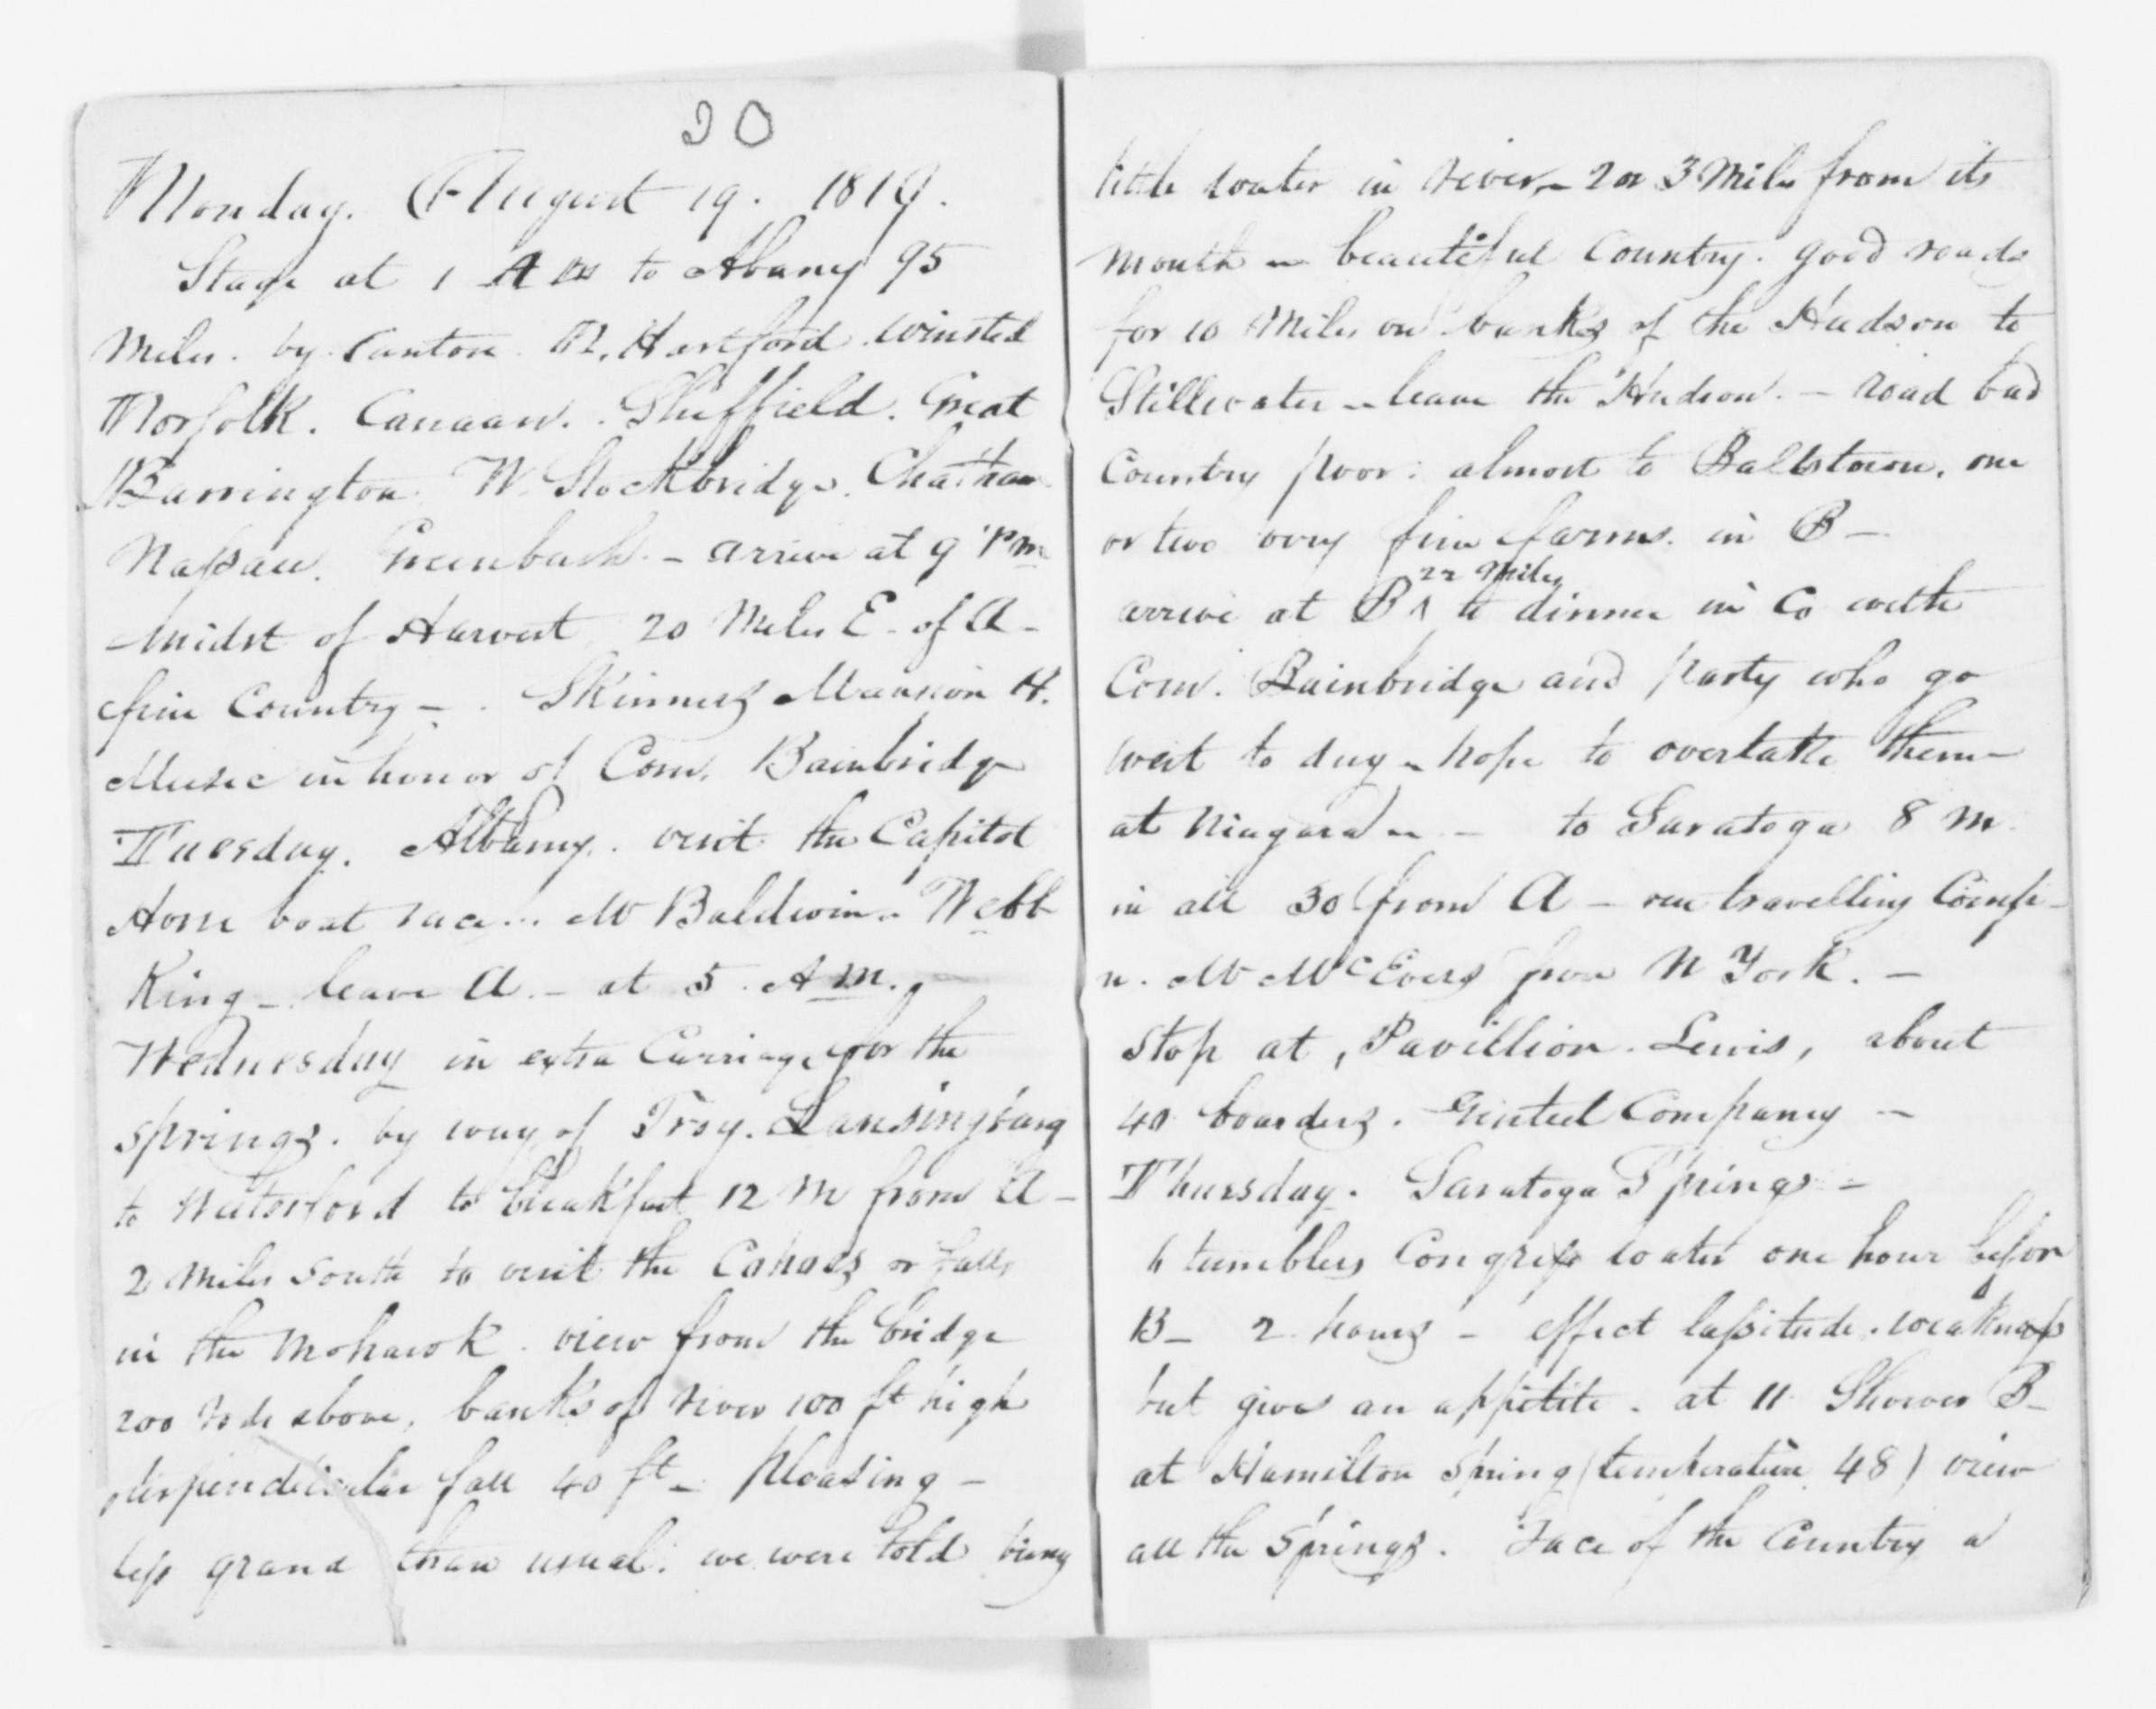 20
Monday. August 19. 1819.
Stage at 1 A M to Albany 95
Miles. by Canton. N. Hartford. Winsted
Norfolk. Canaan. Sheffield. Great
Barrington. W. Stockbridge. Chatham
Nassau. Greenbush. - arrive at 9 P m
- midst of Harvest 20 Miles E. of A -
fine Country - . Skinners Mansion H.
Music in honor of Com. Bainbridge
Tuesday. Albany. visit the Capitol
Horse boat race... Mr Baldwin. Webb
King - leave A. - at 5. A m. -
Wednesday in extra Carriage for the
springs. by way of Troy. Lansingburg
to Waterford to breakfast 12 M from A -
2 Miles South to visit the Cohoes or falls
in the Mohawk. view from the bridge
200 rods above, banks of river 100 ft high
perpendicular fall 40 ft - pleasing -
less grand than usual. we were told being
little water in river - 2 or 3 Miles from its
mouth - beautiful Country. good roads
for 10 Miles on banks of the Hudson to
Stillwater - leave the Hudson. - road bad
Country poor: almost to Ballstown. one
or two very fine farms. in B -
22 Miles
arrive at B ^ to dinner in Co with
Com. Bainbridge and party who go
west to day - hope to overtake them -
at Niagara - - to Saratoga 8 m.
in all 30 from A - our travelling Comp-
n. Mr McEvers from N York. -
Stop at, Pavillion. Lewis, about
40 boarders. Genteel Company -
Thursday. Saratoga Springs -
6 tumblers Congress water one hour before
B - 2 hours - effect lassitude. weakness
but gives an appetite. at 11 Shower B -
at Hamilton Spring (temperature 48) view
all the Springs. Face of the Country a